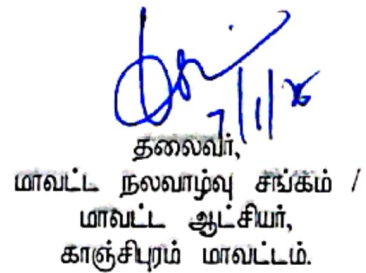 7/1/26
தலைவர்,
மாவட்ட நலவாழ்வு சங்கம் /
மாவட்ட ஆட்சியர்,
காஞ்சிபுரம் மாவட்டம்.